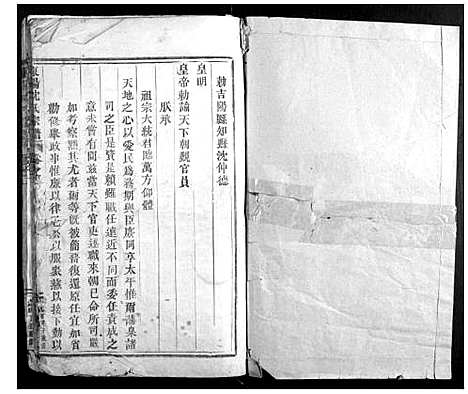 勅吉陽縣知縣沈仲德
皇明
皇帝勅諭天下朝覲官員
朕承
祖宗大統君臨萬方仰體
天地之心以愛民為務期與臣庶同享太平惟爾藩臬諸
司之臣是資是賴雖職任遠近不同而委任責成之
意未嘗有間茲當天下官吏述職來朝已命所司嚴
加考察黜其尤者爾等既被簡畱後還原任宜加省
勸修舉政事惟廉以律己公以服衆慈以接下勤以